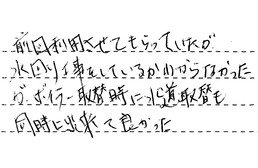 前回利用させてもらっていたが
水回り工事をしているか分からなかった
が、ボイラー取替時に水道取替も
同時に出来て良かった